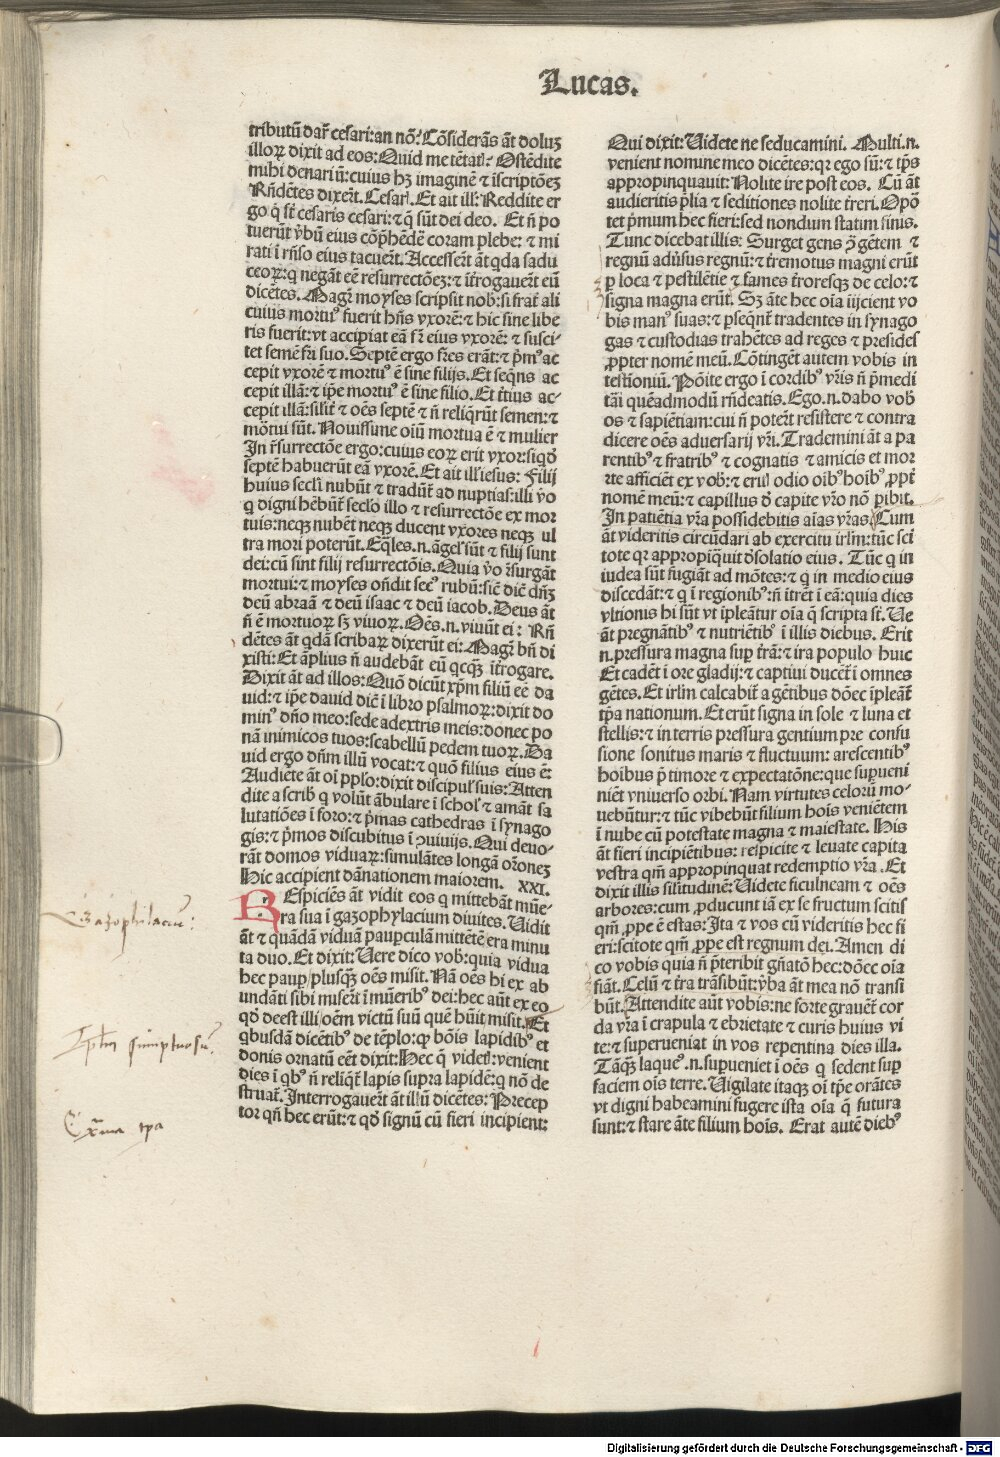 Lucas.
tributū dar̄ cesari: an nō? Cōsiderās āt dolū
illoꝝ dixit ad eos: Quid me tētatꝭ? Ostēdite
mihi denariū: cuius hꝫ imaginē ⁊ īscriptōeꝫ
Rn̄dētes dixer̄t. Cesarꝭ. Et ait illꝭ: Reddite er
go q̄ st̄ cesaris cesari: ⁊ q̄ sūt dei deo. Et n̄ po
tuerūt v̄bū eius cōp̄hēdē coram plebe: ⁊ mi
rati ī rn̄so eius tacuer̄t. Accesser̄t āt qdā sadu
ceoꝝ: q̇ negāt eē resurrectōeꝫ: ⁊ īt̄rogauer̄t eū
dicētes. Magr̄ moyses scripsit nob̄: si frat̄ ali
cuius mortuꝰ fuerit hn̄s vxorē: ⁊ hic sine libe
ris fuerit: vt accipiat eā fr̄ eius vxorē: ⁊ susci-
tet semē fr̄i suo. Septē ergo fr̄es erāt: ⁊ p̄mꝰ ac
cepit vxorē ⁊ mortuꝰ ē sine filijs. Et seq̄ns ac
cepit illā: ⁊ ip̄e mortuꝰ ē sine filio. Et t̄tius ac-
cepit illā: silit̄ ⁊ oēs septē ⁊ n̄ reliq̄rūt semen: ⁊
mōtui sūt. Nouissime oiū mortua ē ⁊ mulier
In r̄surrectōe ergo: cuius eoꝝ erit vxor: siqdē
septē habuerūt eā vxorē. Et ait illꝭ iesus: Filij
huius secl̄i nubūt ⁊ tradūt̄ ad nuptias: illi v̄o
q̇ digni hēbūt̄ secl̄o illo ⁊ resurrectōe ex mor
tuis: neqꝫ nubēt neqꝫ ducent vxores neqꝫ ul
tra mori poterūt. Eq̄les .n. āgelꝭ sūt ⁊ filij sunt
dei: cū sint filij resurrectōis. Quia v̄o r̄surgāt
mortui: ⁊ moyses on̄dit secꝰ rubū: sic̄ dic̄ dn̄ꝫ
deū abraā ⁊ deū isaac ⁊ deū iacob. Deus āt
n̄ ē mortuoꝝ sꝫ viuoꝝ. Oēs .n. viuūt ei: Rn̄
dētes āt qdā scribaꝝ dixerūt ei: Magr̄ bn̄ di
xisti: Et āplius n̄ audebāt eū qcqꝫ īt̄rogare.
Dixit āt ad illos: Quō dicūt xp̄m filiū eē da
uid: ⁊ ip̄e dauid dic̄ ī libro psalmoꝝ: dixit do
minꝰ dn̄o meo: sede adextris meis: donec po
nā inimicos tuos: scabellū pedem tuoꝝ. Da
uid ergo dn̄m illū vocat: ⁊ quō filius eius ē:
Audiēte āt oī pplo: dixit discipulꝭ suis: Atten
dite a scribꝭ q̇ volūt ābulare ī scholꝭ ⁊ amāt sa
lutatiōes ī foro: ⁊ p̄mas cathedras ī synago
gis: ⁊ p̄mos discubitus ī ꝯuiuijs. Qui deuo-
rāt domos viduaꝝ: simulātes longā or̄oneꝫ
Hic accipient dānationem maiorem. XXI.
REspiciēs āt vidit eos q̇ mittebāt mūe-
ra sua ī gazophylacium diuites. Uidit
āt ⁊ quādā viduā paupculā mittētē era minu
ta duo. Et dixit: Uere dico vob̄: quia vidua
hec paup plusqꝫ oēs misit. Nā oēs hi ex ab
undāti sibi miser̄t ī mūeribꝰ dei: hec aūt ex eo
qd̄ deest illi oēm victū suū quē hūit misit. Et
qbusdā dicētibꝰ de tēplo: ꝙ bōis lapidibꝰ et
donis ornatū eēt dixit: Hec q̄ videtꝭ: venient
dies ī qbꝰ n̄ reliq̄t̄ lapis supra lapidē: q̄ nō de
struat̄. Interrogauer̄t āt illū dicētes: Precep
tor qn̄ hec erūt: ⁊ qd̄ signū cū fieri incipient:
Qui dixit: Uidete ne seducamini. Multi .n.
venient nomine meo dicētes: qꝛ ego sū: ⁊ tp̄s
appropinquauit: Nolite ire post eos. Cū āt
audieritis p̄lia ⁊ seditiones nolite t̄reri. Opō
tet p̄mum hec fieri: sed nondum statim finis.
Tunc dicebat illis: Surget gens ꝯ gētem ⁊
regnū adūsus regnū: ⁊ t̄remotus magni erūt
ꝑ loca ⁊ pestilētie ⁊ fames t̄roresqꝫ de celo: ⁊
signa magna erūt. Sꝫ āte hec oīa iijcient vo
bis manꝰ suas: ⁊ ꝑseqn̄t̄ tradentes in synago
gas ⁊ custodias trahētes ad reges ⁊ presides
ꝓpter nomē meū. Cōtinget̄ autem vobis in
testioniū. Pōite ergo ī cordibꝰ vr̄is n̄ p̄medi
tāi quēadmodū rn̄deatis. Ego .n. dabo vob̄
os ⁊ sapiētiam: cui n̄ poter̄t resistere ⁊ contra
dicere oēs aduersarij vr̄i. Trademini āt a pa
rentibꝰ ⁊ fratribꝰ ⁊ cognatis ⁊ amicis et mor
rte afficiēt ex vob̄: ⁊ eritꝭ odio oībꝰ hoībꝰ ꝓpt̄
nomē meū: ⁊ capillus d̄ capite vr̄o nō ꝑibit.
In patiētia vr̄a possidebitis aīas vr̄as. Cum
āt videritis circūdari ab exercitu irlm: tūc sci
tote qꝛ appropiq̄uit d̄solatio eius. Tūc q̇ in
iudea sūt fugiāt ad mōtes: ⁊ q̇ in medio eius
discedāt: ⁊ q̇ ī regionibꝰ: n̄ ītrēt ī eā: quia dies
vltionis hi sūt vt īpleātur oīa q̄ scripta st̄. Ue
āt pregnātibꝰ ⁊ nutriētibꝰ ī illis diebus. Erit
.n. pressura magna sup t̄rā: ⁊ ira populo huic
Et cadēt ī ore gladij: ⁊ captiui ducēt̄ ī omnes
gētes. Et irlm calcabit̄ a gētibus dōec īpleāt̄
tp̄a nationum. Et erūt signa in sole ⁊ luna et
stellis: ⁊ in terris pressura gentium pre confu
sione sonitus maris ⁊ fluctuum: arescentibꝰ
hoibus p̄ timore ⁊ expectatōne: que supueni
niēt vniuerso orbi. Nam virtutes celorū mo-
uebūtur: ⁊ tūc vibebūt filium hoīs veniētem
ī nube cū potestate magna ⁊ maiestate. His
āt fieri incipiētibus: respicite ⁊ leuate capita
vestra qm̄ appropinquat redemptio vr̄a. Et
dixit illis silitudinē: Uidete ficulneam ⁊ oēs
arbores: cum ꝓducunt iā ex se fructum scitis
qm̄ ꝓpe ē estas: Ita ⁊ vos cū videritis hec fi
eri: scitote qm̄ ꝓpe est regnum dei. Amen di
co vobis quia n̄ p̄teribit gn̄atō hec: dōec oīa
fiāt. Celū ⁊ t̄ra trāsibūt: v̄ba āt mea nō transi
būt. Attendite aūt vobis: ne forte grauēt̄ cor
da vr̄a ī crapula ⁊ ebrietate ⁊ curis huius vi
te: ⁊ superueniat in vos repentina dies illa.
Tāqꝫ laqueꝰ .n. supueniet ī oēs q̇ sedent sup
faciem oīs terre. Uigilate itaqꝫ oī tp̄e orātes
vt digni habeamini fugere ista oīa q̄ futura
sunt: ⁊ stare āte filium hoīs. Erat autē diebꝰ
Gazophilaciū:
Tēplm sumptuosū:
Extrema tp̄a
Digitalisierung gefördert durch die Deutsche Forschungsgemeinschaft - DFG